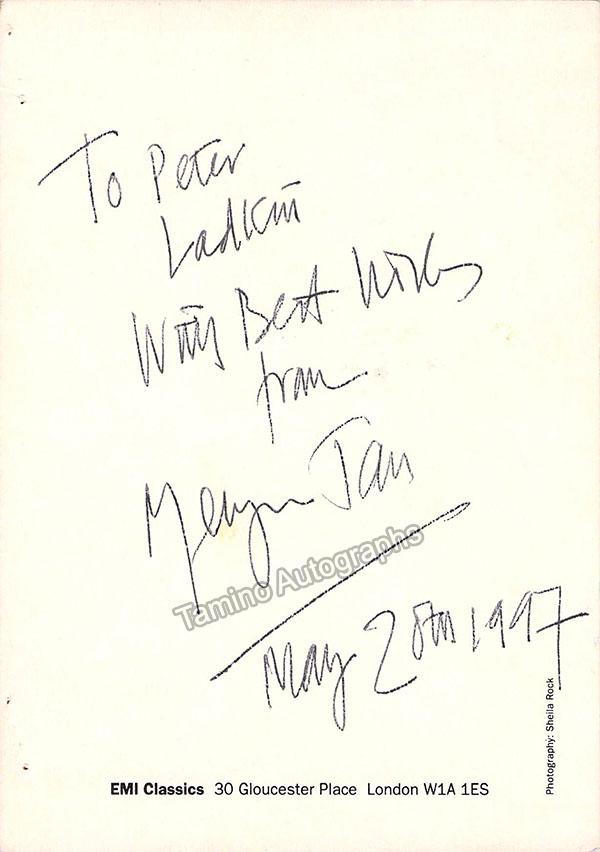 To Peter
Ladkin
With Best Wishes
from
Melvyn Tan
Tamino Autographs
May 28th 1997
Photography: Sheila Rock
EMI Classics 30 Gloucester Place London W1A 1ES